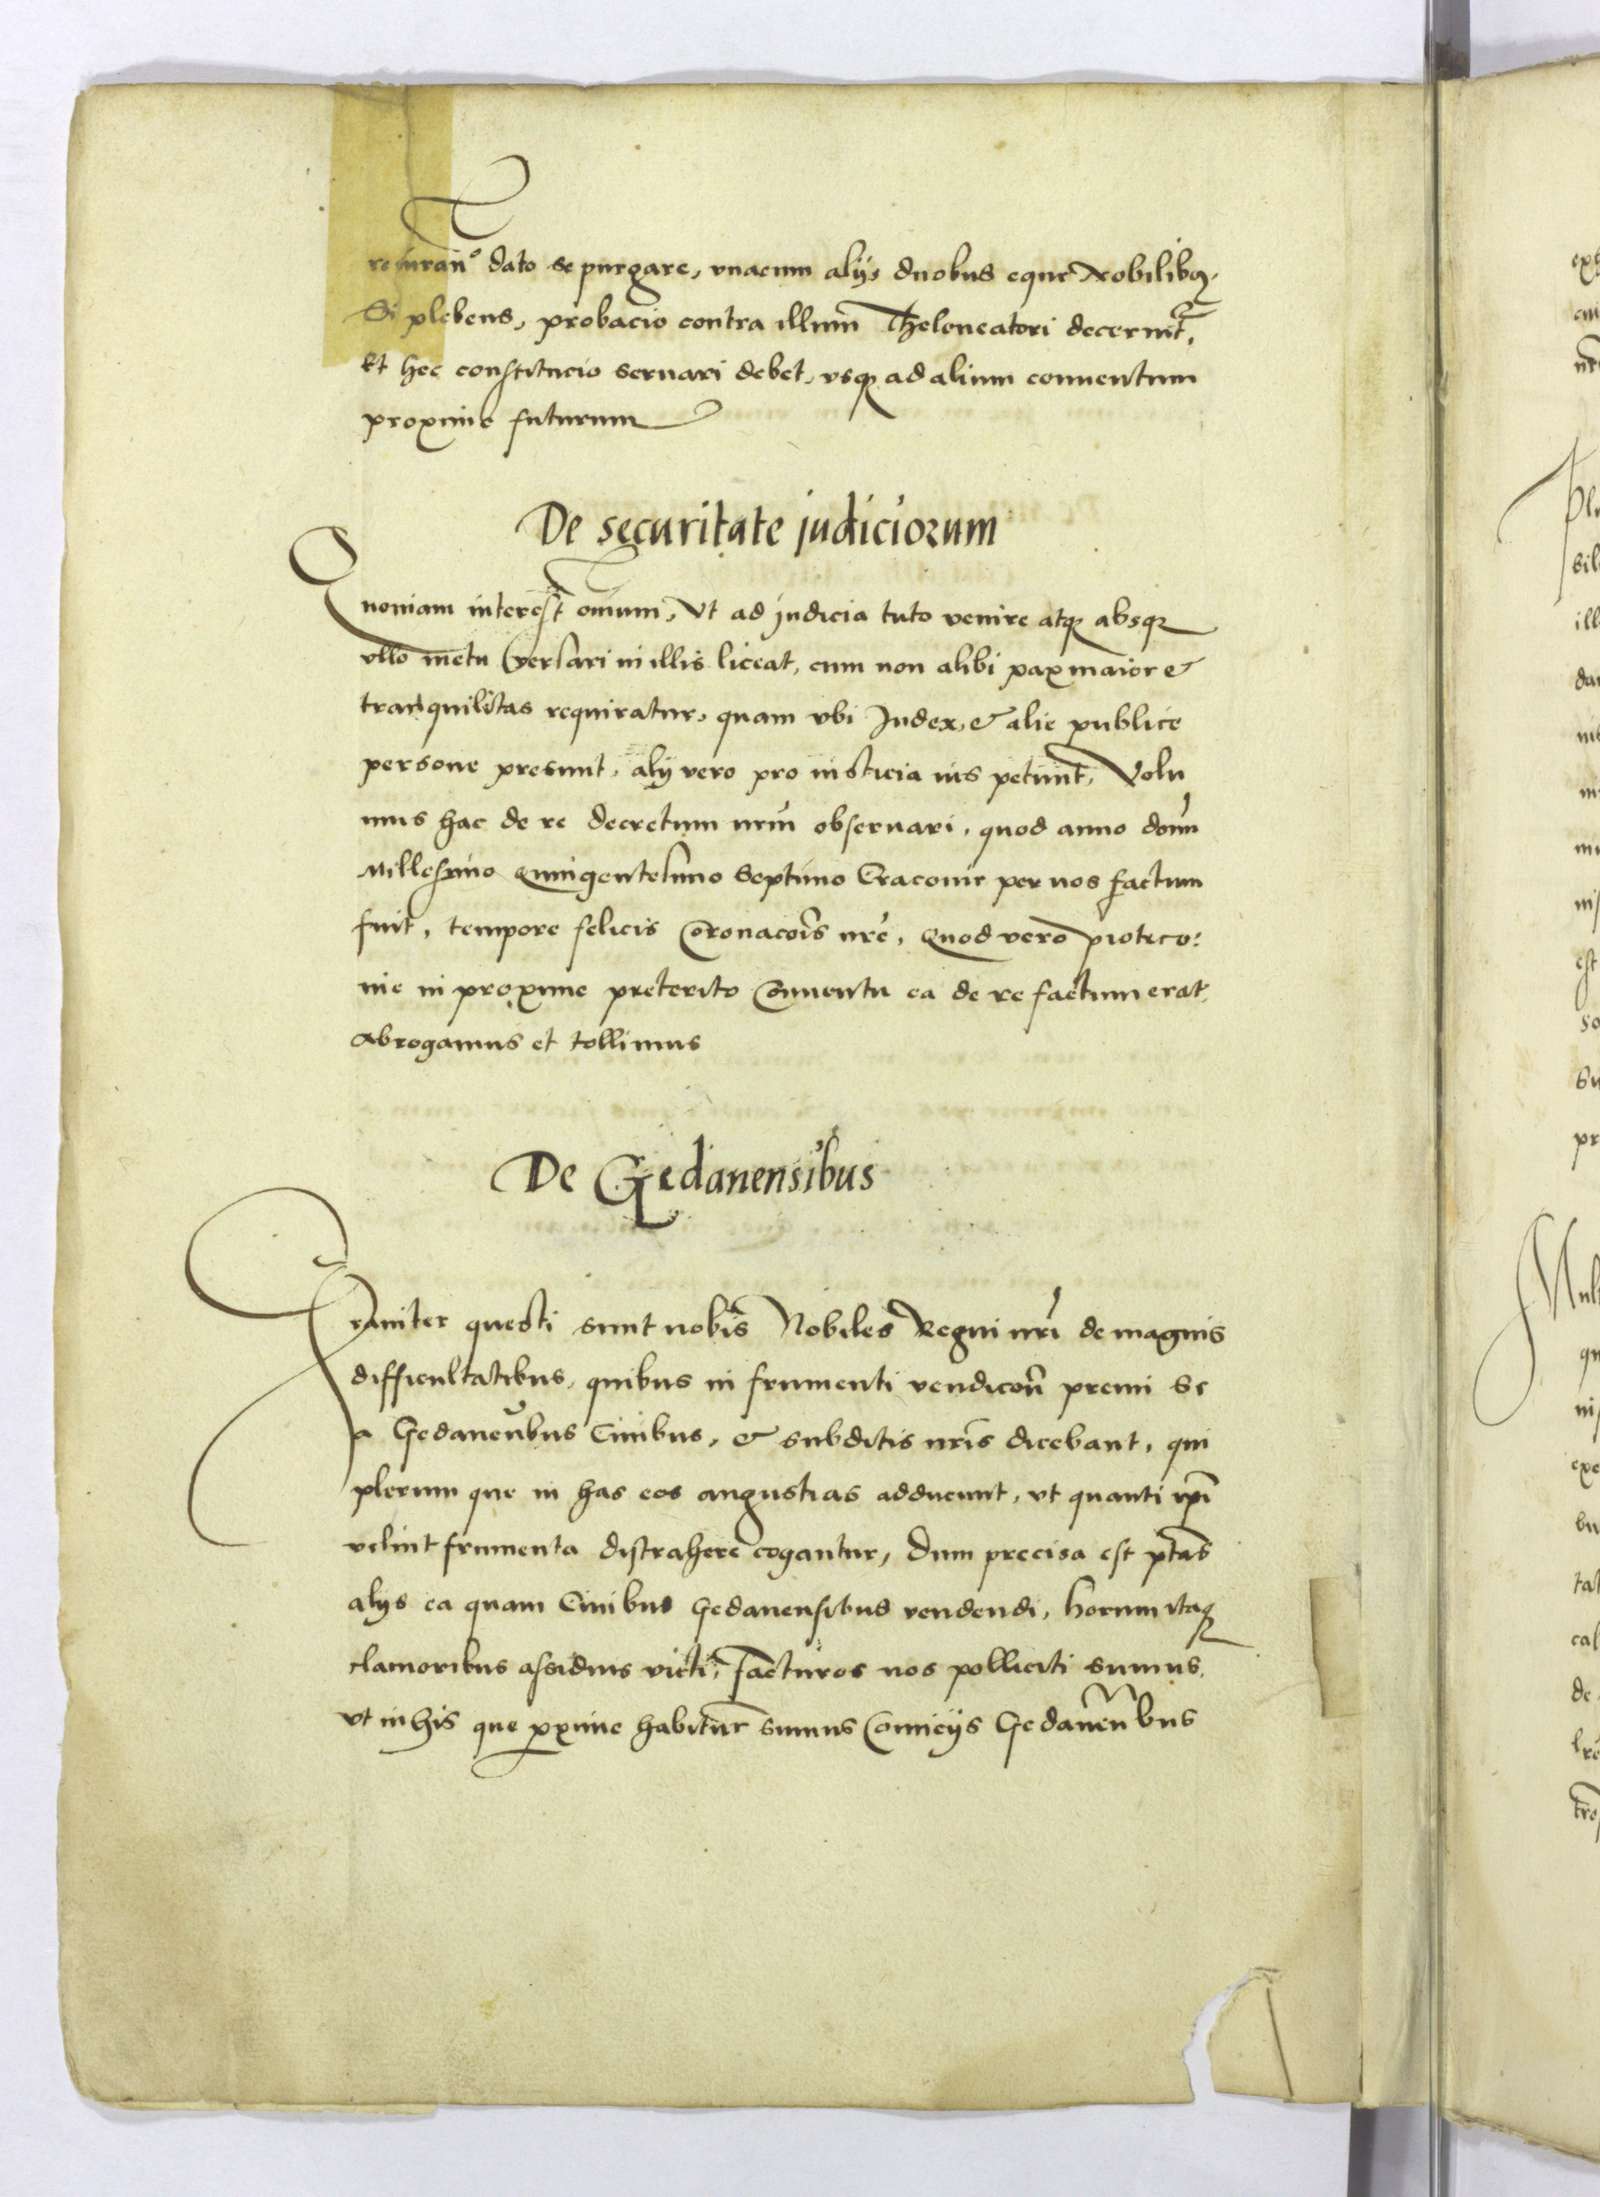 dato se purgare, vnacum alijs duobus eque Nobilibq.
Si plebeus, probacio contra illum Theloneatori decernit̃.
Et hec constitucio seruari debet, vsq ad alium conuentum
proxime futurum
De securitate judiciorum
Quoniam interest om̃ium, Vt ad judicia tuto venire atq absq
vllo metu versari in illis liceat, cum non alibi pax maior &
tranquilitas requiratur, quam vbi Judex, & alie publice
persone presunt, alij vero pro iusticia ius petunt, Volu
mus hac de re decretum nr̃m obseruari, quod anno dom̃
Millesimo Quingentesimo Septimo Cracouie per nos factum
fuit, tempore felicis Coronacõis nr̃e, Quod vero piotrco:
uie in proxime preterito Conuentu ea de re factum erat,
Abrogamus et tollimus
De Gedanensibus
Grauiter questi sunt nobis Nobiles Regni nr̃i de magnis
difficultatibus, quibus in frumenti vendicõn premi se
a Gedanen̄bus Ciuibus, & subditis nr̃is dicebant, qui
plerum que in has eos angustias adducunt, vt quanti ip̃i
velint frumenta distrahere cogantur, Dum precisa est p̃tas
alijs ea quam Ciuibus Gedanensibus vendendi, horum itaq
clamoribus assiduis victi, facturos nos polliciti sumus,
vt in his que pxime habitur̃ sumus Comicijs Gedanen̄bus